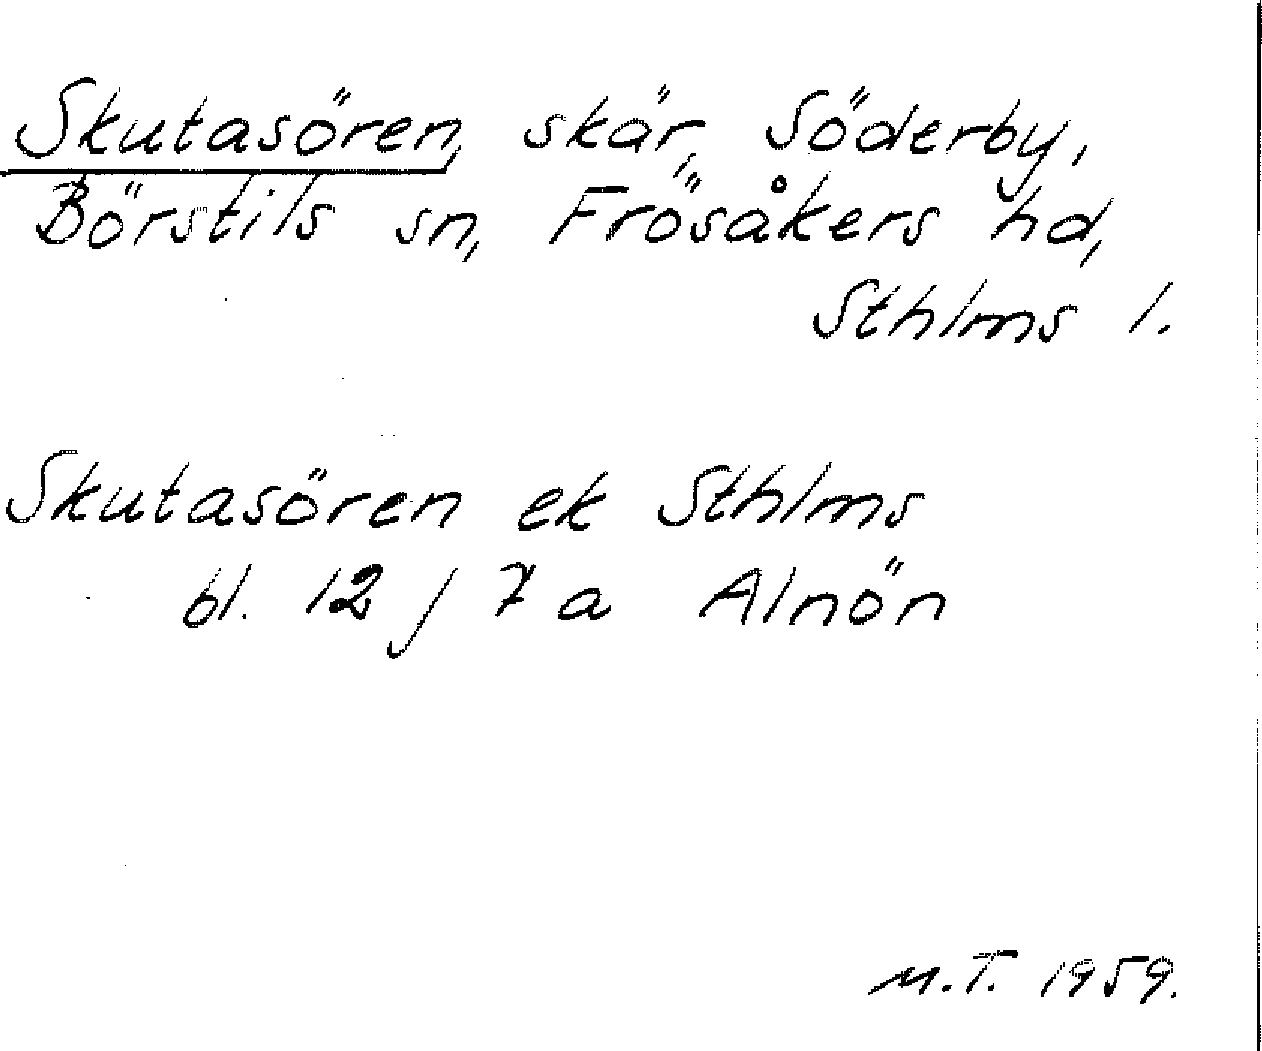 Skutasören, skär, Söderby,
Börstils sn, Frösåkers hd,
Sthlms l.
Skutasören ek Sthlms
bl. 12 j 7 a Alnön
M.T. 1959.